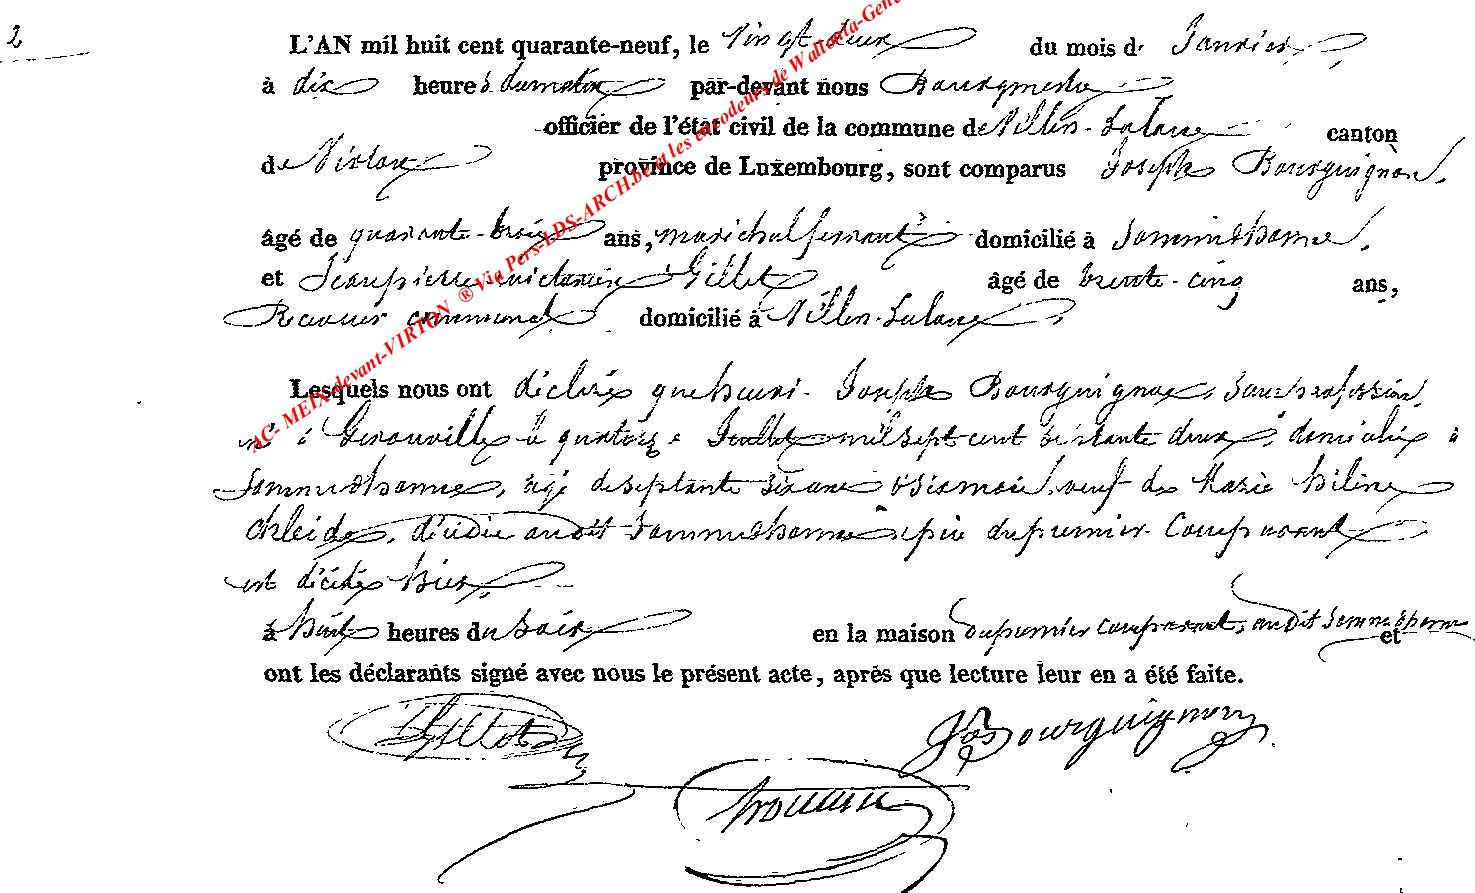 2
L'AN mil huit cent quarante-neuf, le vingt-deux du mois de Janvier
à dix heures du matin par-devant nous Bourgmestre
officier de l'état civil de la commune de Villers-Laloue canton
de Virton province de Luxembourg, sont comparus Joseph Bourguignon,
âgé de quarante-trois ans, maréchal ferrant domicilié à Sommethonne,
et Jean pierre Gillet âgé de trente-cinq ans,
Receveur communal domicilié à Villers-Laloue
Lesquels nous ont déclaré que henri-Joseph Bourguignon, sans profession,
né à Gérouville le quatorze Juillet mil sept cent septante deux, domicilié à
Sommethonne, âgé de septante six ans & six mois, veuf de Marie hélène
décédée au dit Sommethonne, père du premier Comparant
est décédé hier
à huit heures du soir en la maison du premier Comparant, au dit Sommethonne et
ont les déclarants signé avec nous le présent acte, après que lecture leur en a été faite.
Gillet
Jos Bourguignon
AC- MEIX-devant-VIRTON ® Via Pers-LDS-ARCH.be et les encodeurs de Wallonia-Gene